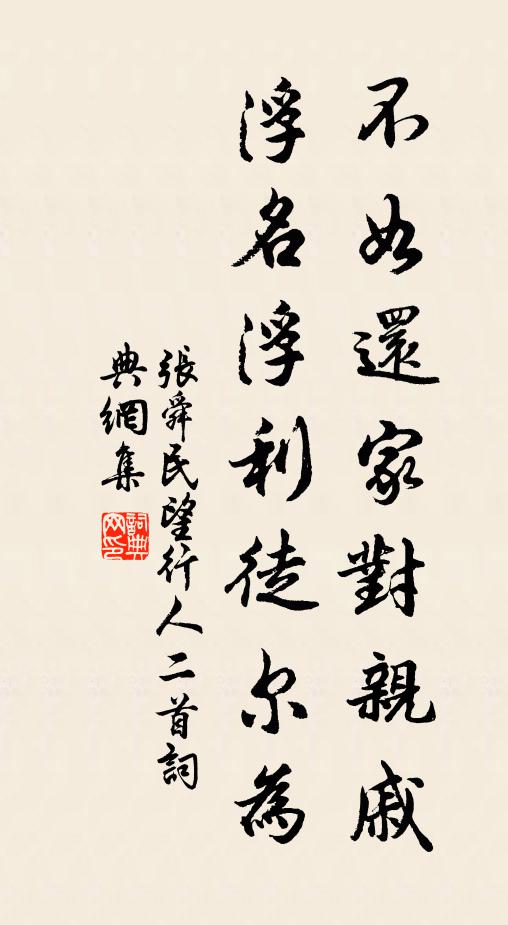 不如還家對親戚
浮名浮利徒尔為
張舜民望行人二首詞
典網集
詞典
网印